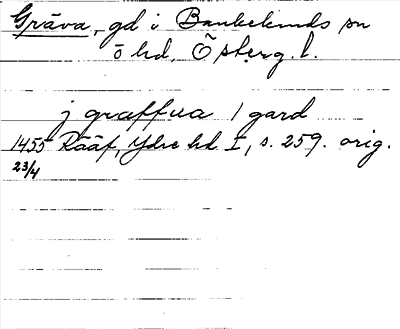 Gräva, gd i Bankekinds sn
ö hd, Österg. l.
j graffua 1 gard
1455 Rääf, Ydre hd I, s. 259. orig.
23/4